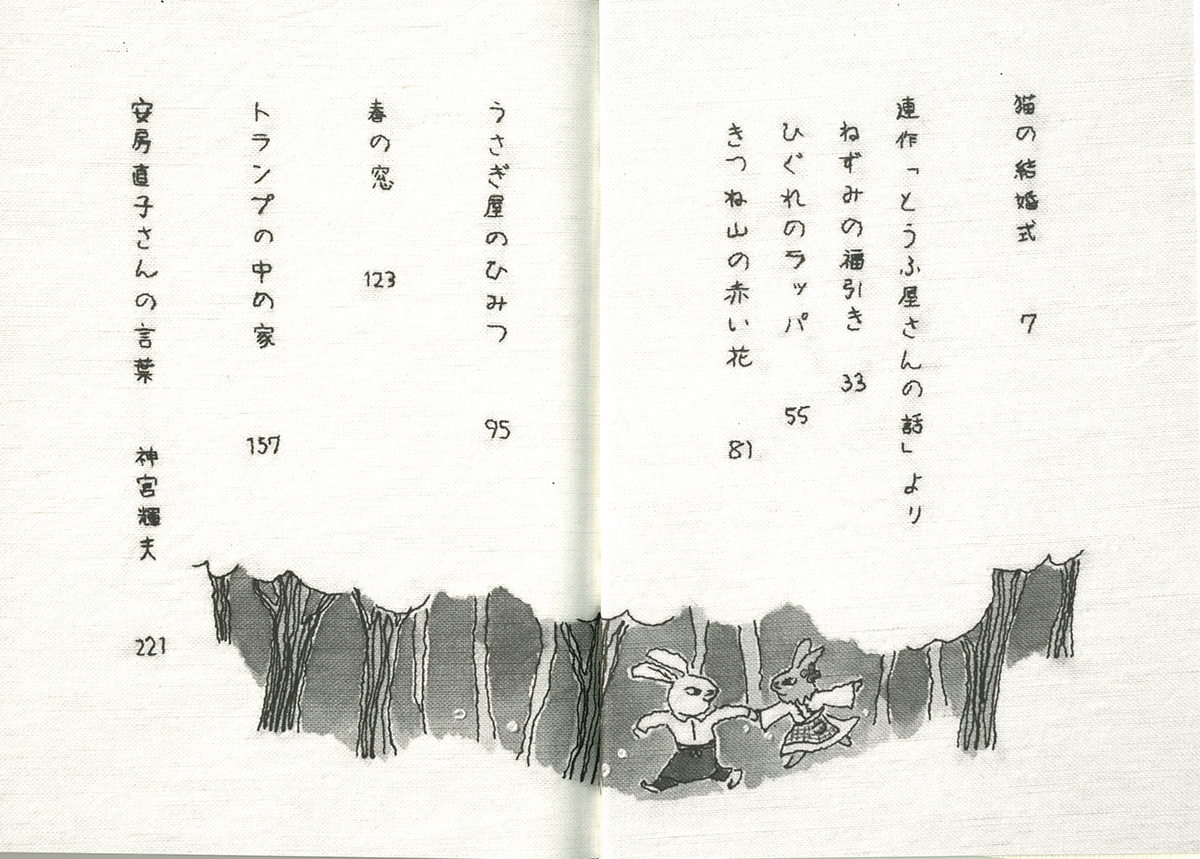 猫の結婚式 7
連作「とうふ屋さんの話」より
ねずみの福引き 33
ひぐれのラッパ 55
きつね山の赤い花 81
うさぎ屋のひみつ 95
春の窓 123
トランプの中の家 157
安房直子さんの言葉 神宮輝夫 221